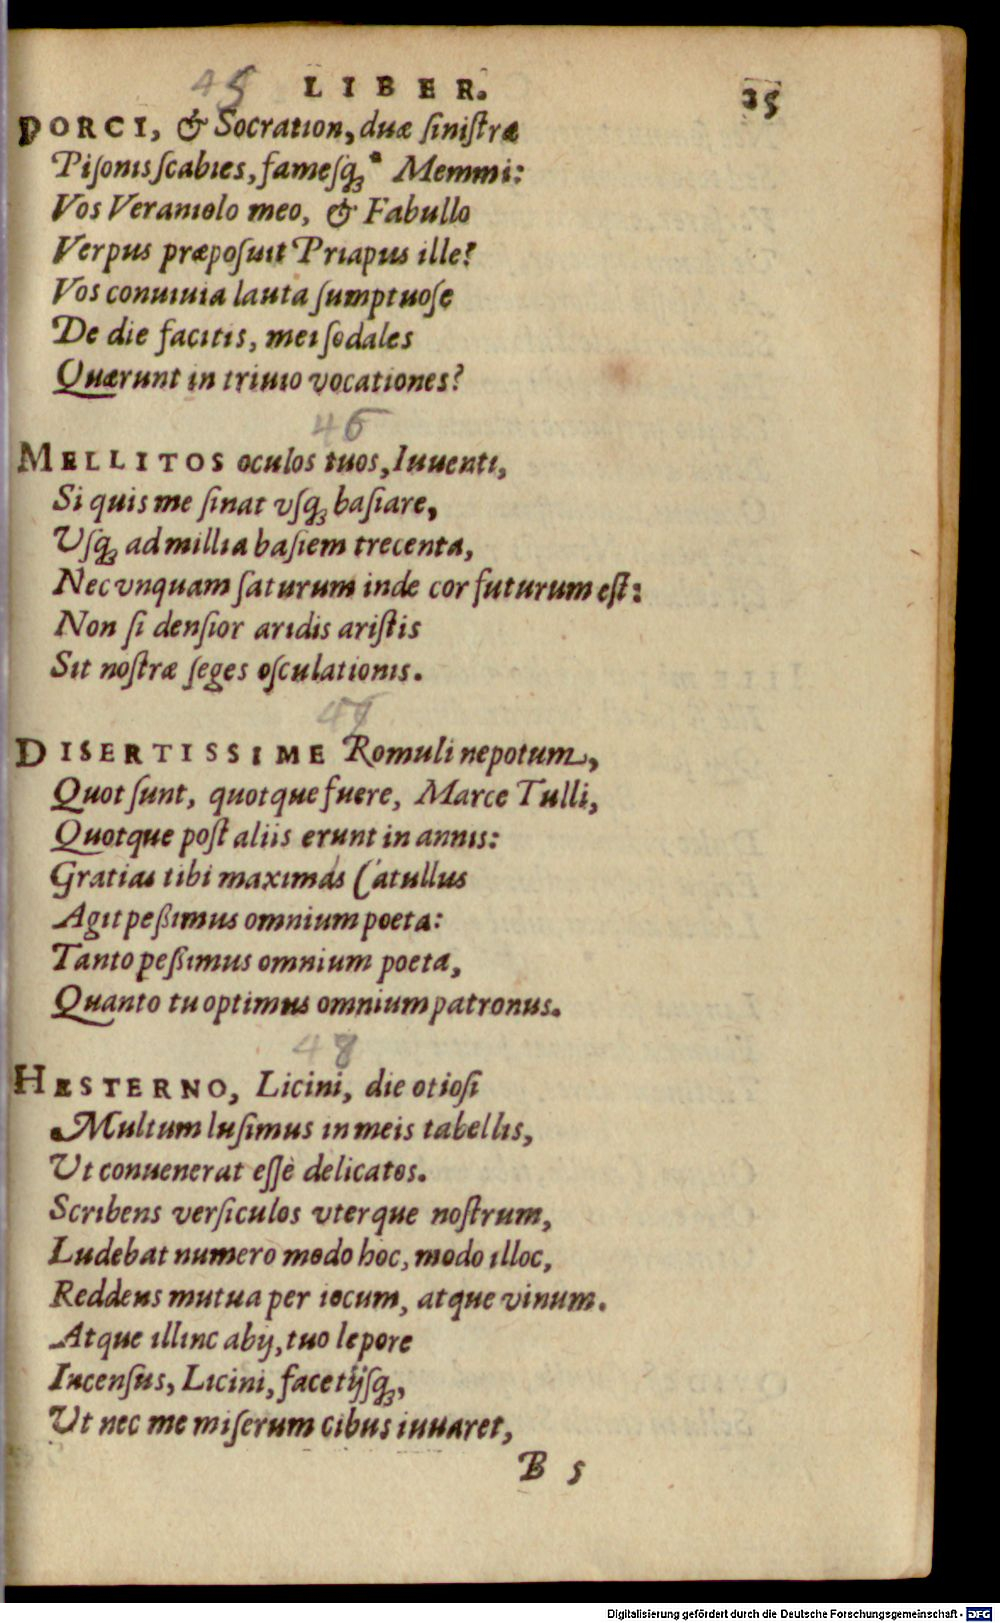 LIBER. 25
45
PORCI, & Socration, duæ ſiniſtræ
Piſonis ſcabies, fameſq́ꝫ Memmi:
Vos Veraniolo meo, & Fabullo
Verpus præpoſuit Priapus ille?
Vos conuiuia lauta ſumptuoſe
De die facitis, mei ſodales
Quærunt in triuio vocationes?
46
MELLITOS oculos tuos, Iuuenti,
Si quis me ſinat vſq́ꝫ baſiare,
Uſq́ꝫ ad millia baſiem trecenta,
Nec vnquam ſaturum inde cor futurum eſt:
Non ſi denſior aridis ariſtis
Sit noſtræ ſeges oſculationis.
47
DISERTISSIME Romuli nepotum,
Quot ſunt, quotque fuere, Marce Tulli,
Quotque poſt aliis erunt in annis:
Gratias tibi maximas Catullus
Agit peßimus omnium poeta:
Tanto peßimus omnium poeta,
Quanto tu optimus omnium patronus.
48
HÆSTERNO, Licini, die otioſi
Multum luſimus in meis tabellis,
Ut conuenerat eſſe delicatos.
Scribens verſiculos vterque noſtrum,
Ludebat numero modo hoc, modo illoc,
Reddens mutua per iocum, atque vinum.
Atque illinc abij, tuo lepore
Incenſus, Licini, facetijſq́ꝫ,
Ut nec me miſerum cibus iuuaret,
B 5
Digitalisierung gefördert durch die Deutsche Forschungsgemeinschaft - DFG